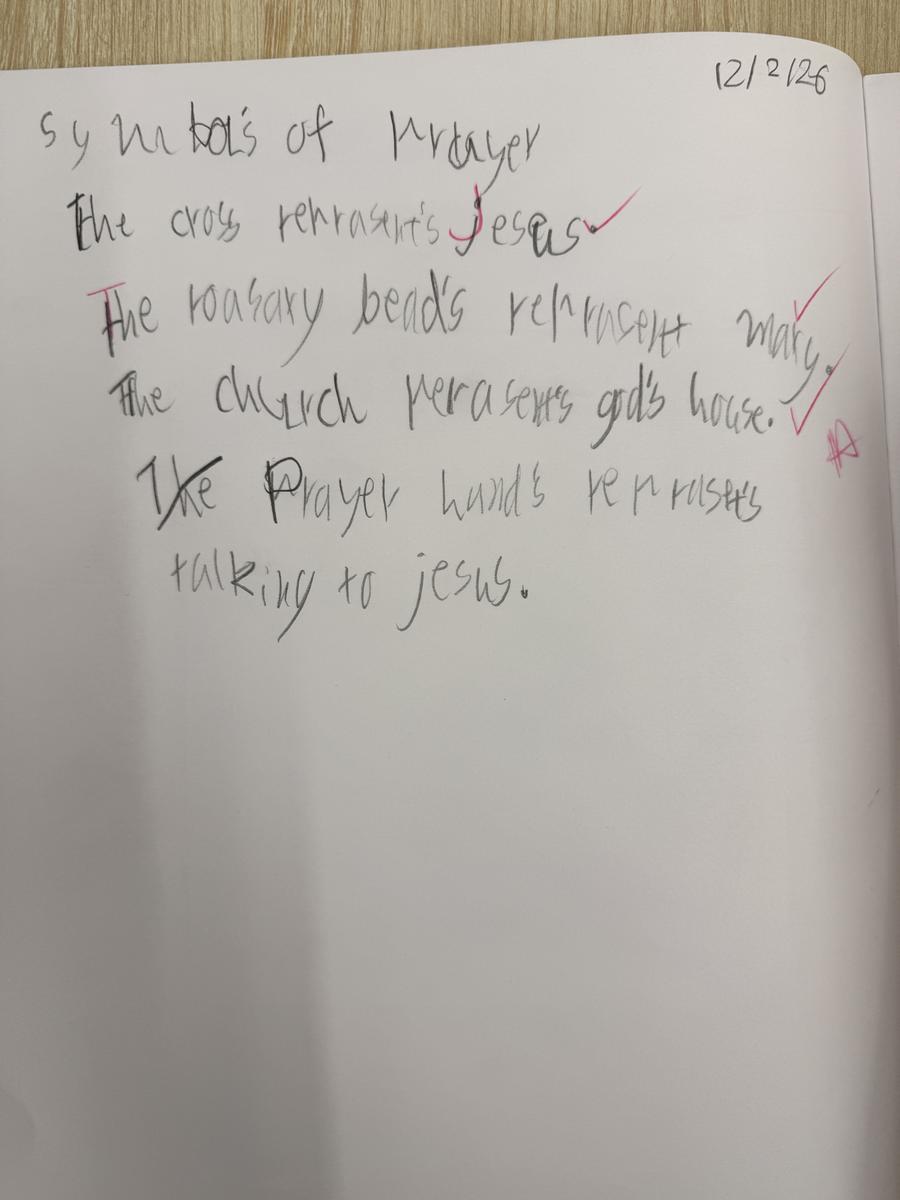 12/2/26
symbol's of prayer
The cross reprasent's jesus.
The roasary bead's reprasent mary.
The church perasent's god's house.
The Prayer hand's reprasets
talking to jesus.